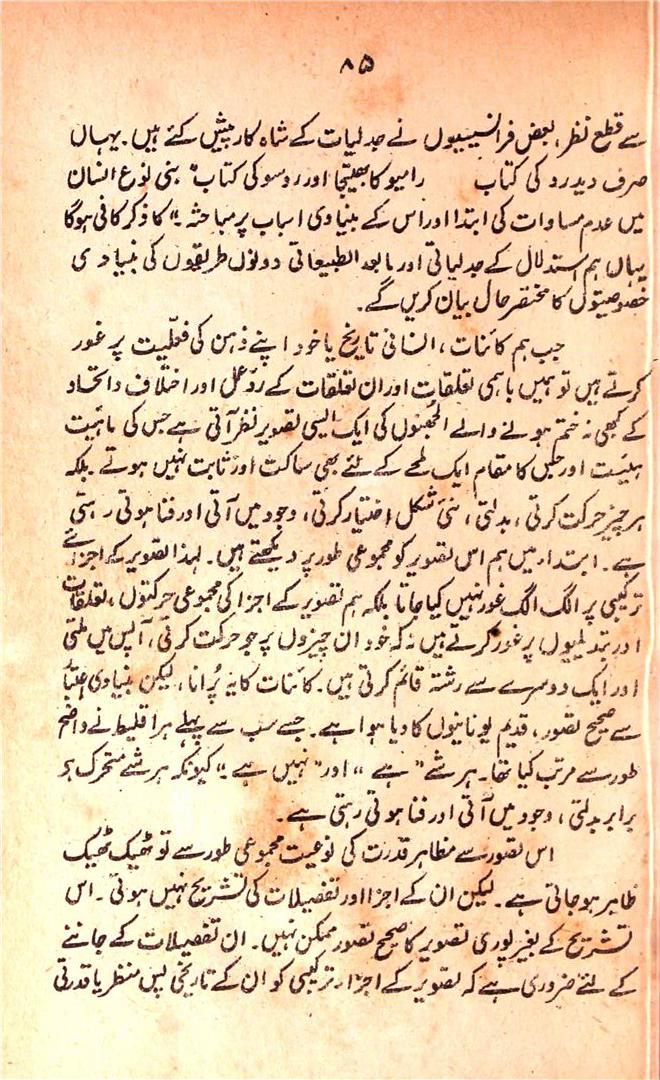 ۸۵
سے قطع نظر، بعض فرانسیسیوں نے جدلیات کے شاہ کار پیش کئے ہیں۔ یہاں
صرف دیدرو کی کتاب رامیو کا بھتیجا اور روسو کی کتاب "بنی نوع انسان
میں عدم مساوات کی ابتدا اور اس کے بنیادی اسباب پر مباحثہ۔" کا ذکر کافی ہوگا
یہاں ہم استدلال کے جدلیاتی اور مابعد الطبیعاتی دونوں طریقوں کی بنیادی
خصوصیتوں کا مختصر حال بیان کریں گے۔
جب ہم کائنات، انسانی تاریخ یا خود اپنے ذہن کی فعلیت پر غور
کرتے ہیں تو ہمیں باہمی تعلقات اور ان تعلقات کے ردّ عمل اور اختلاف و اتحاد
کے کبھی نہ ختم ہونے والے الجھنوں کی ایک ایسی تصویر نظر آتی ہے جس کی ماہیت
ہیئت اور جس کا مقام ایک لمحے کے لئے بھی ساکت اور ثابت نہیں ہوتے۔ بلکہ
ہر چیز حرکت کرتی، بدلتی، نئی شکل اختیار کرتی، وجود میں آتی اور فنا ہوتی رہتی
ہے۔ ابتداء میں ہم اس تصویر کو مجموعی طور پر دیکھتے ہیں۔ لہذا تصویر کے اجزائے
ترکیبی پر الگ الگ غور نہیں کیا جاتا بلکہ ہم تصویر کے اجزا کی مجموعی حرکتوں، تعلقات
اور تبدیلیوں پر غور کرتے ہیں نہ کہ خود ان چیزوں پر جو حرکت کرتی، آپس میں ملتی
اور ایک دوسرے سے رشتہ قائم کرتی ہیں۔ کائنات کا یہ پُرانا، لیکن بنیادی اعتبار
سے صحیح تصور، قدیم یونانیوں کا دیا ہوا ہے۔ جسے سب سے پہلے ہراقلیطا نے واضح
طور سے مرتب کیا تھا۔ ہر شے "ہے" اور "نہیں ہے۔" کیونکہ ہر شے متحرک ہو
برابر بدلتی، وجود میں آتی اور فنا ہوتی رہتی ہے۔
اس تصور سے مظاہر قدرت کی نوعیت مجموعی طور سے تو ٹھیک ٹھیک
ظاہر ہو جاتی ہے۔ لیکن ان کے اجزا اور تفصیلات کی تشریح نہیں ہوتی۔ اس
تشریح کے بغیر پوری تصویر کا صحیح تصور ممکن نہیں۔ ان تفصیلات کے جاننے
کے لئے ضروری ہے کہ تصویر کے اجزاء ترکیبی کو ان کے تاریخی پس منظر یا قدرتی